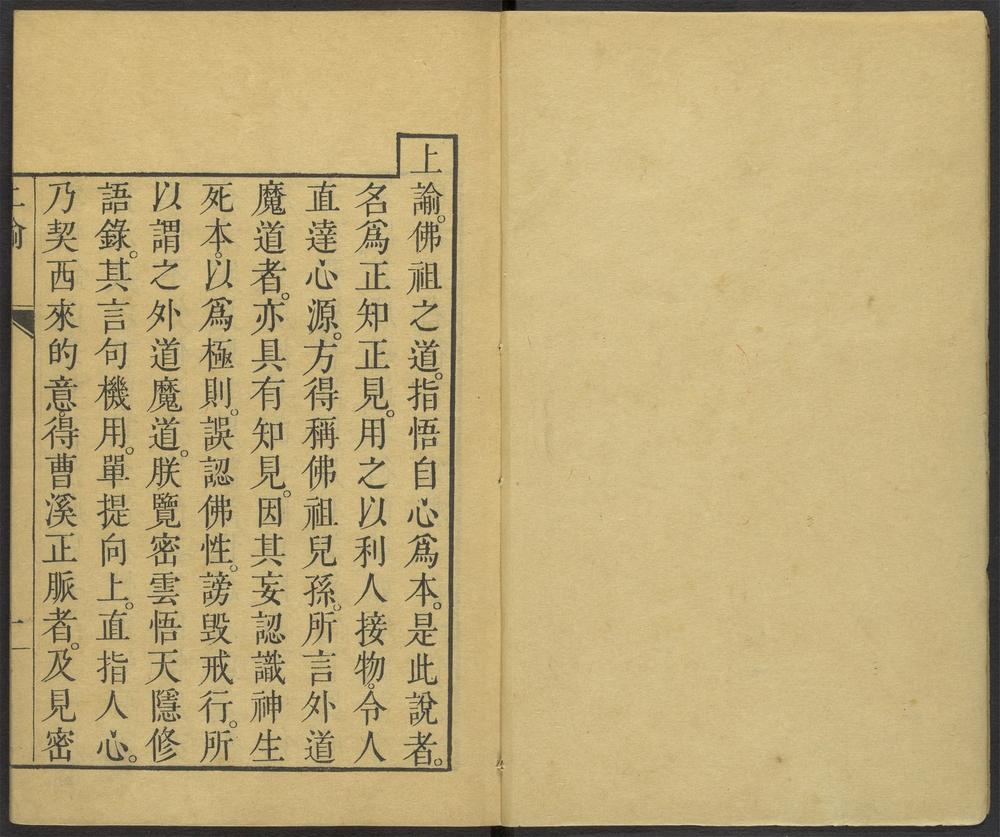 上諭。佛祖之道。指悟自心爲本。是此說者。
名爲正知正見。用之以利人接物。令人
直達心源。方得稱佛祖兒孫。所言外道
魔道者。亦具有知見。因其妄認識神生
死本。以爲極則。誤認佛性。謗毀戒行。所
以謂之外道魔道。朕覽密雲悟天隱修
語錄。其言句機用。單提向上。直指人心。
乃契西來的意。得曹溪正脈者。及見密
上諭
一